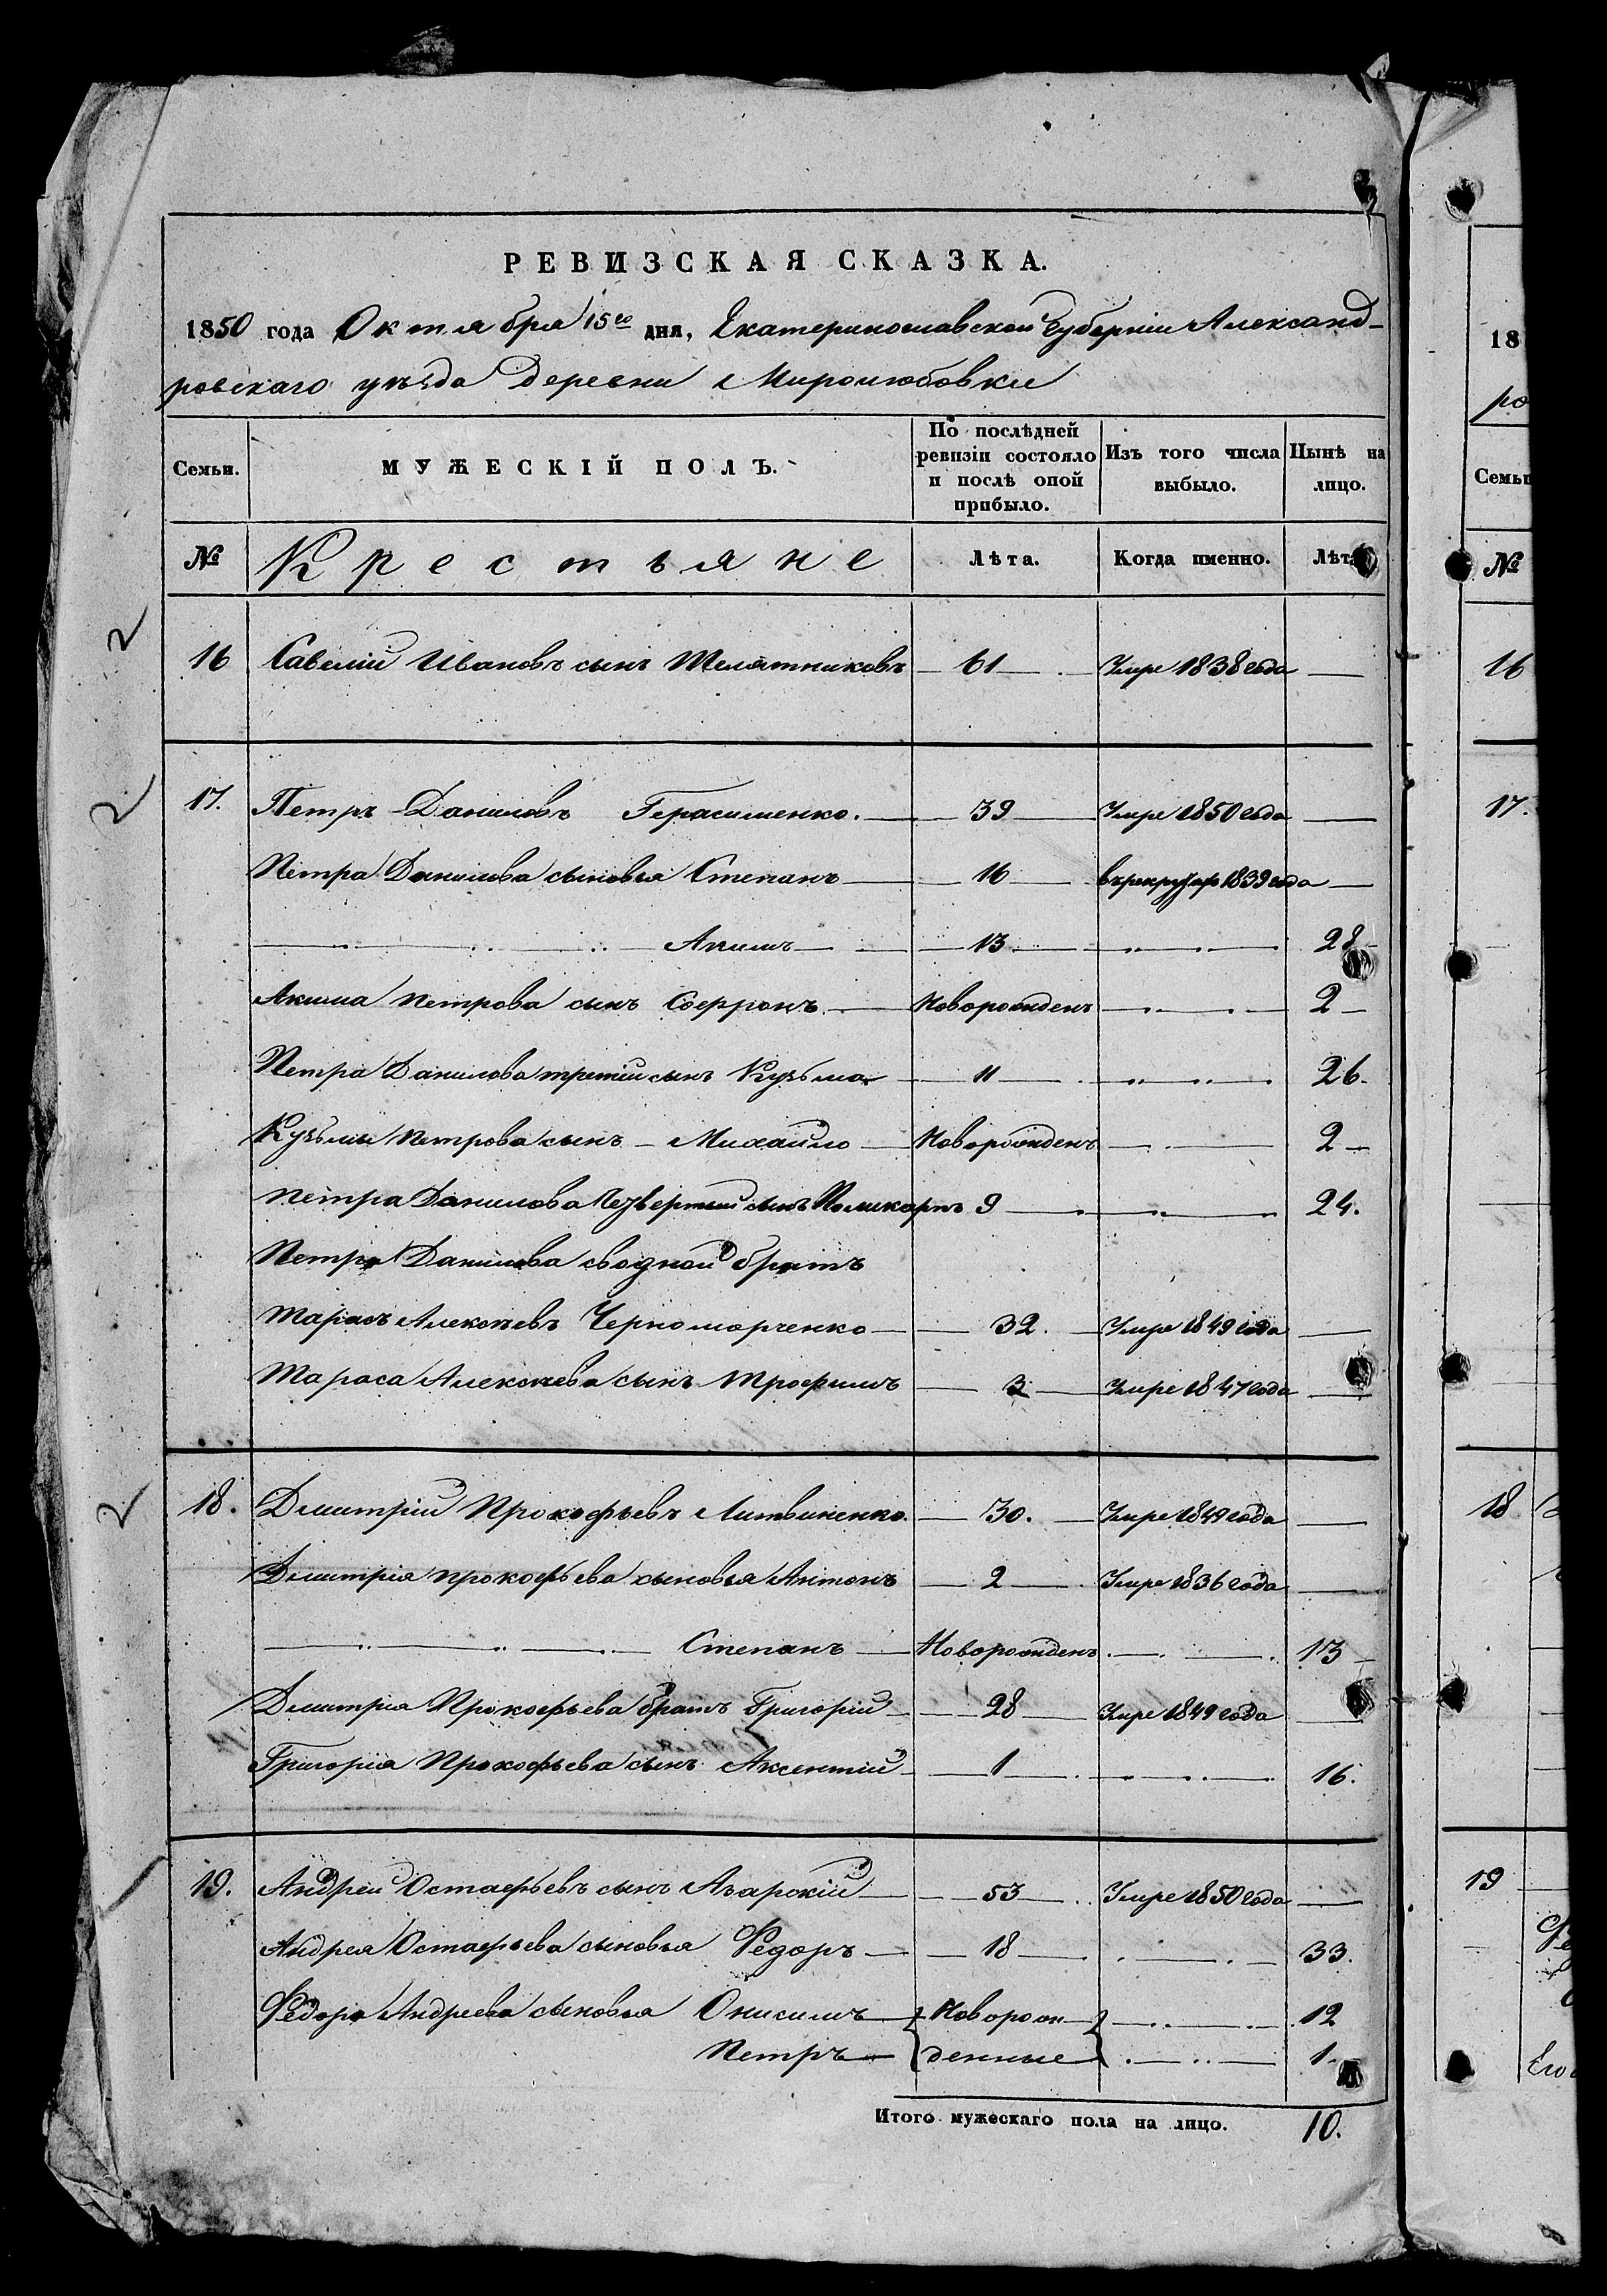 РЕВИЗСКАЯ СКАЗКА.
1850 года Октября 15го дня, Екатеринославской Губерніи Александ-
ровскаго уѣзда Деревни Миролюбовки
Семьи. МУЖЕСКІЙ ПОЛЪ. По послѣдней ревизіи состояло и послѣ оной прибыло. Изъ того числа выбыло. Нынѣ на лицо.
№ Крестьяне Лѣта. Когда именно. Лѣта
16 Савелій Ивановъ сынъ Телятниковъ 61 Умре 1838 года
17. Петръ Даниловъ Герасименко. 39 Умре 1850 года
Петра Данилова сыновья Степанъ 16 в рекруты 1839 года
Акимъ 13 28
Акима Петрова сынъ Софронъ Новорожденъ 2
Петра Данилова третій сынъ Кузьма 11 26.
Кузьмы Петрова сынъ Михайло Новорожденъ 2
Петра Данилова Четвертый сынъ Поликарпъ 9 24.
Петра Данилова сводной братъ
Тарасъ Алексѣевъ Черноморченко 32. Умре 1849 года
Тараса Алексѣева сынъ Трофимъ 3 Умре 1847 года
18. Дмитрій Прокофьевъ Литвиненко. 30. Умре 1849 года
Дмитрія Прокофьева сыновья Антонъ 2 Умре 1836 года
Степанъ Новорожденъ 13
Дмитрія Прокофьева братъ Григорій 28 Умре 1849 года
Григорія Прокофьева сынъ Аксентій 1 16.
19. Андрей Остафьевъ сынъ 53 Умре 1850 года
Андрея Остафьева сыновья Федоръ 18 33.
Федора Андреева сыновья Онисимъ Новорож- 12
Петръ денные 1
Итого мужескаго пола на лицо. 10.
18
ро
Семьи
№
16
17.
18
19